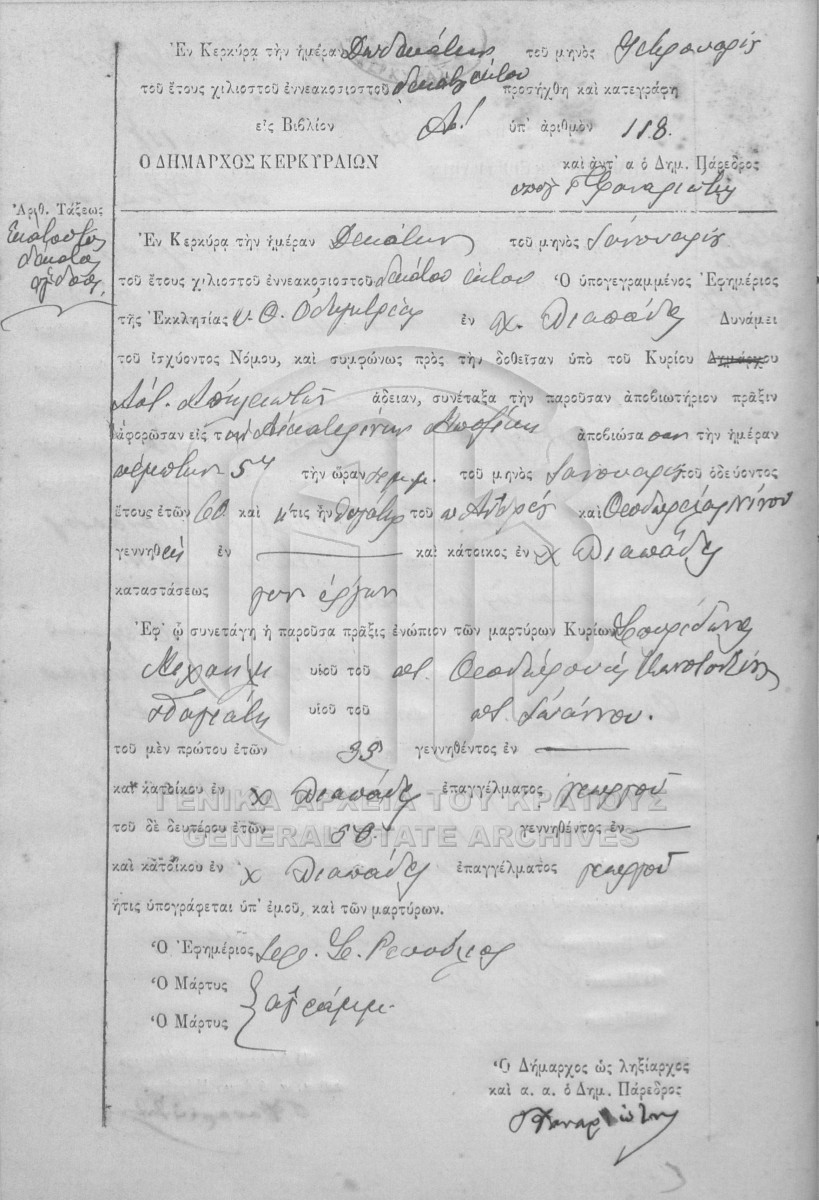 Ἐν Κερκύρᾳ τὴν ἡμέραν Δωδεκάτην τοῦ μηνὸς
τοῦ ἔτους χιλιοστοῦ ἐννεακοσιοστοῦ δεκάτου ἕκτου προσήχθη καὶ κατεγράφη
εἰς Βιβλίον Α! ὑπ' ἀριθμὸν 118.
Ὁ ΔΗΜΑΡΧΟΣ ΚΕΡΚΥΡΑΙΩΝ καὶ ἀντ' α ὁ Δημ. Πάρεδρος
Φαναριώτης
Ἀριθ. Τάξεως
Ἑκατοστὸς
δέκατος
ὄγδοος
Ἐν Κερκύρᾳ τὴν ἡμέραν Δεκάτην τοῦ μηνὸς Ἰανουαρίου
τοῦ ἔτους χιλιοστοῦ ἐννεακοσιοστοῦ δεκάτου ἕκτου Ὁ ὑπογεγραμμένος Ἐφημέριος
τῆς Ἐκκλησίας Υ. Θ. Ὁδηγητρίας ἐν χ. Λιαπάδες Δυνάμει
τοῦ ἰσχύοντος Νόμου, καὶ συμφώνως πρὸς τὴν δοθεῖσαν ὑπὸ τοῦ Κυρίου Δημάρχου
ἄδειαν, συνέταξα τὴν παροῦσαν ἀποβιωτήριον πρᾶξιν
ἀφορῶσαν εἰς τὴν Αἰκατερίνην ἀποβιώσασαν τὴν ἡμέραν
πέμπτην 5ην τὴν ὥραν μ.μ. τοῦ μηνὸς Ἰανουαρίου τοῦ ὁδεύοντος
ἔτους ἐτῶν 60 καὶ ἥτις ἦν θυγάτηρ τοῦ π Ἀνδρέου καὶ Θεοδώρας
γεννηθεῖσα ἐν — καὶ κάτοικος ἐν χ Λιαπάδες
καταστάσεως ἔργων
Ἐφ' ᾧ συνετάγη ἡ παροῦσα πρᾶξις ἐνώπιον τῶν μαρτύρων Κυρίων Σπυρίδωνος
υἱοῦ τοῦ ποτ. Θεοδώρου καὶ Κωνσταντίνου
υἱοῦ τοῦ ποτ. Ἰωάννου.
τοῦ μὲν πρώτου ἐτῶν 35 γεννηθέντος ἐν —
καὶ κατοίκου ἐν χ Λιαπάδες ἐπαγγέλματος γεωργοῦ
ΓΕΝΙΚΑ ΑΡΧΕΙΑ ΤΟΥ ΚΡΑΤΟΥΣ
τοῦ δὲ δευτέρου ἐτῶν 50. γεννηθέντος ἐν —
GENERAL STATE ARCHIVES
καὶ κατοίκου ἐν χ Λιαπάδες ἐπαγγέλματος γεωργοῦ
ἥτις ὑπογράφεται ὑπ' ἐμοῦ, καὶ τῶν μαρτύρων.
Ὁ Ἐφημέριος Ἱερ. Σ. Ρεπούλιος
Ὁ Μάρτυς
ἀγράμμ.
Ὁ Μάρτυς
Ὁ Δήμαρχος ὡς ληξίαρχος
καὶ α. α. ὁ Δημ. Πάρεδρος
Φαναριώτης